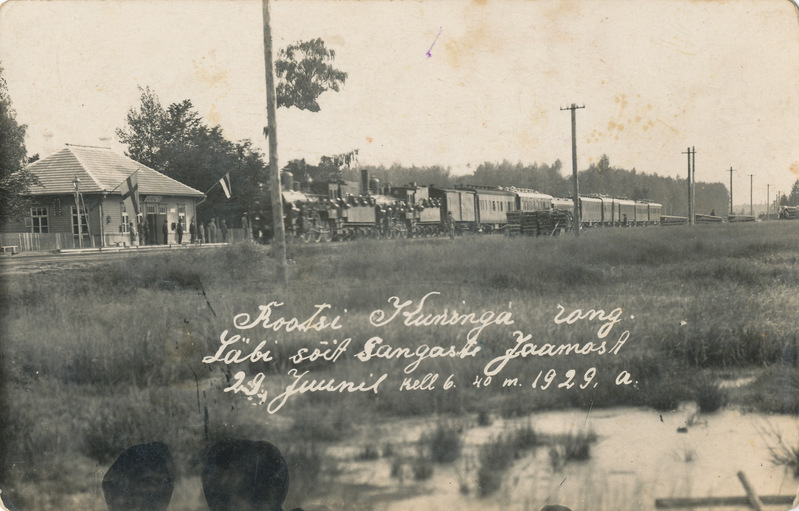 Rootsi Kuninga rong.
Läbi sõit Sangaste Jaamost
29. Juunil kell 6. 40 m. 1929. a.